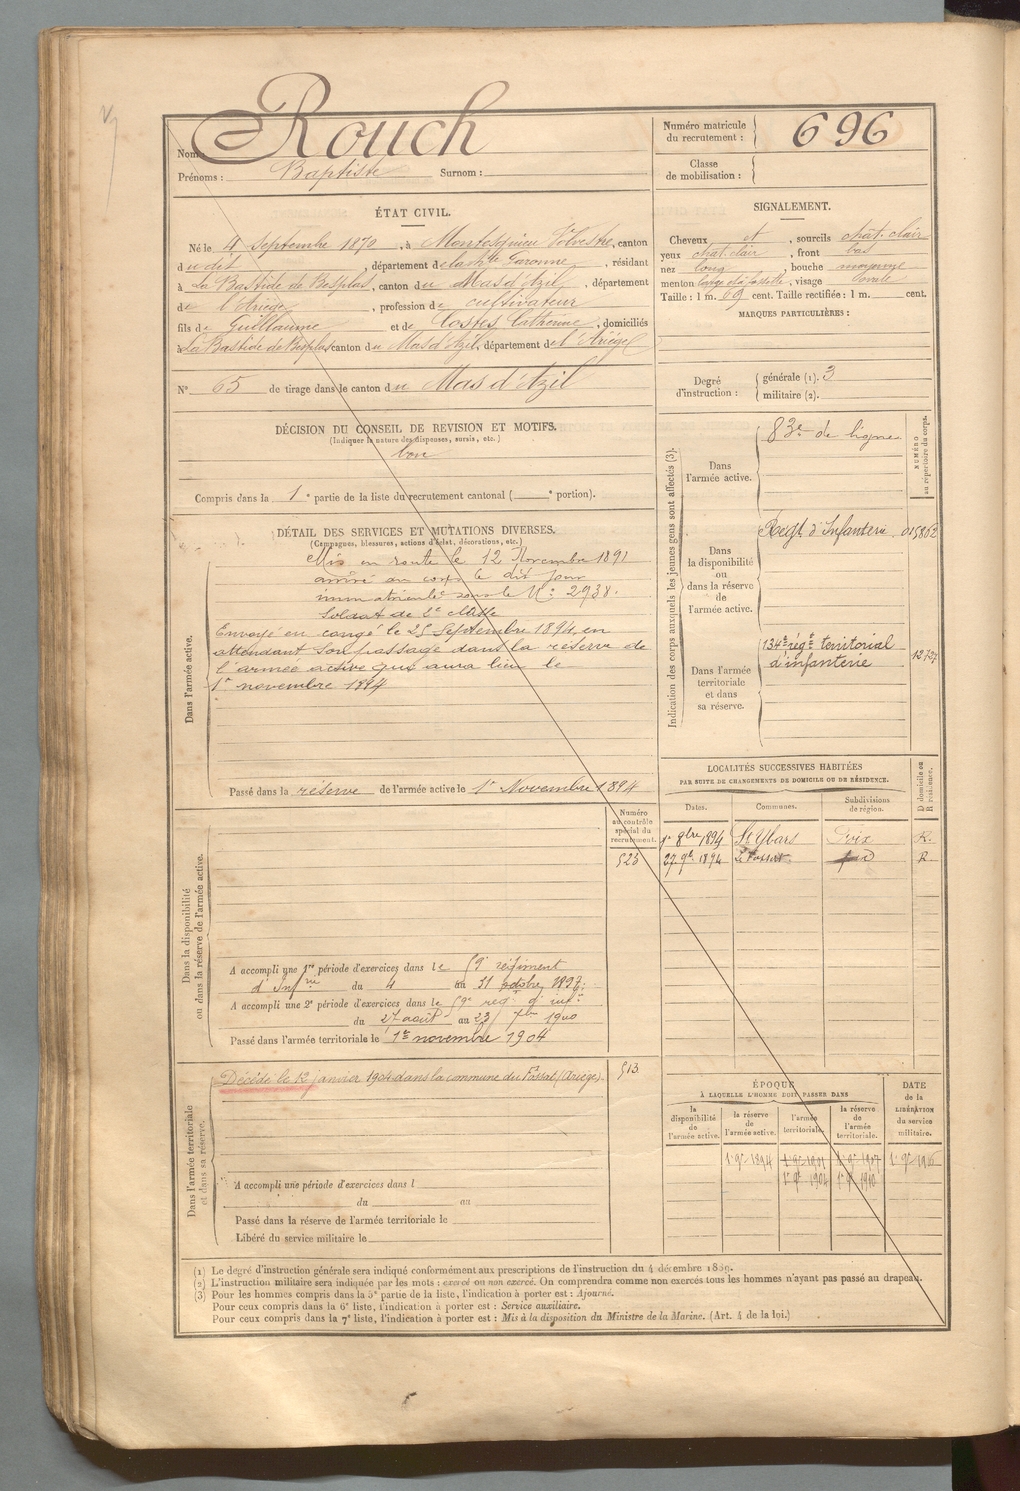 Rouch
Nom :
Prénoms : Baptiste Surnom :
Numéro matricule
du recrutement : 696
Classe
de mobilisation :
ÉTAT CIVIL.
Né le 4 Septembre 1870, à Montesquieu Volvestre, canton
dudit, département de la hte Garonne, résidant
à La Bastide de Besplas, canton du Mas d'Azil, département
de l'Ariège, profession de cultivateur
fils de Guillaume et de Costes Catherine, domiciliés
à La Bastide de Besplas canton du Mas d'Azil, département de l'Ariège
N° 65 de tirage dans le canton du Mas d'Azil
SIGNALEMENT.
Cheveux et, sourcils chât. clair
yeux chat. clair, front bas
nez long, bouche moyenne
menton large et à fossette, visage ovale
Taille : 1 m. 69 cent. Taille rectifiée : 1 m. cent.
MARQUES PARTICULIÈRES :
Degré
d'instruction :
générale (1). 3
militaire (2).
DÉCISION DU CONSEIL DE REVISION ET MOTIFS.
(Indiquer la nature des dispenses, sursis, etc.)
bon
Compris dans la 1e partie de la liste du recrutement cantonal ( e portion).
DÉTAIL DES SERVICES ET MUTATIONS DIVERSES.
(Campagnes, blessures, actions d'éclat, décorations, etc.)
Dans l'armée active.
Mis en route le 12 Novembre 1891
arrivé au corps le dit jour
immatriculé sous le N° 2938.
Soldat de 2e classe
Envoyé en congé le 25 Septembre 1894, en
attendant son passage dans la réserve de
l'armée active qui aura lieu le
1er novembre 1894
Passé dans la réserve de l'armée active le 1er Novembre 1894
Indication des corps auxquels les jeunes gens sont affectés (3).
NUMÉRO
au répertoire du corps.
Dans
l'armée active.
83e de ligne
Dans
la disponibilité
ou
dans la réserve
de
l'armée active.
Regt d'Infanterie 015862
Dans l'armée
territoriale
et dans
sa réserve.
134e régt territorial
d'infanterie
12727
LOCALITÉS SUCCESSIVES HABITÉES
PAR SUITE DE CHANGEMENTS DE DOMICILE OU DE RÉSIDENCE.
Dates. Communes. Subdivisions
de région.
D domicile ou
R résidence.
1er 8bre 1894 St Ybars Foix R.
27 9bre 1894 Le Fossat R
Numéro
au contrôle
spécial du
recrutement.
523
Dans la disponibilité
ou dans la réserve de l'armée active.
A accompli une 1re période d'exercices dans le 59e régiment
d'Infrie du 4 au 31 octobre 1897.
A accompli une 2e période d'exercices dans le 59e regt d'infie
du 27 août au 23 7bre 1900
Passé dans l'armée territoriale le 1er novembre 1904
Dans l'armée territoriale
et dans sa réserve.
Décédé le 12 janvier 1904 dans la commune du Fossat (Ariège). 513
A accompli une période d'exercices dans l
du au
Passé dans la réserve de l'armée territoriale le
Libéré du service militaire le
ÉPOQUE
À LAQUELLE L'HOMME DOIT PASSER DANS
la
disponibilité
de
l'armée active.
la réserve
de
l'armée active.
l'armée
territoriale.
la réserve
de l'armée
territoriale.
DATE
de la
LIBÉRATION
du service
militaire.
1er 9bre 1894 1er 9bre 1901 1er 9bre 1907 1er 9bre 1916
1er 9bre 1904 1er 9bre 1910
(1) Le degré d'instruction générale sera indiqué conformément aux prescriptions de l'instruction du 4 décembre 1889.
(2) L'instruction militaire sera indiquée par les mots : exercé ou non exercé. On comprendra comme non exercés tous les hommes n'ayant pas passé au drapeau.
(3) Pour les hommes compris dans la 5e partie de la liste, l'indication à porter est : Ajourné.
Pour ceux compris dans la 6e liste, l'indication à porter est : Service auxiliaire.
Pour ceux compris dans la 7e liste, l'indication à porter est : Mis à la disposition du Ministre de la Marine. (Art. 4 de la loi.)